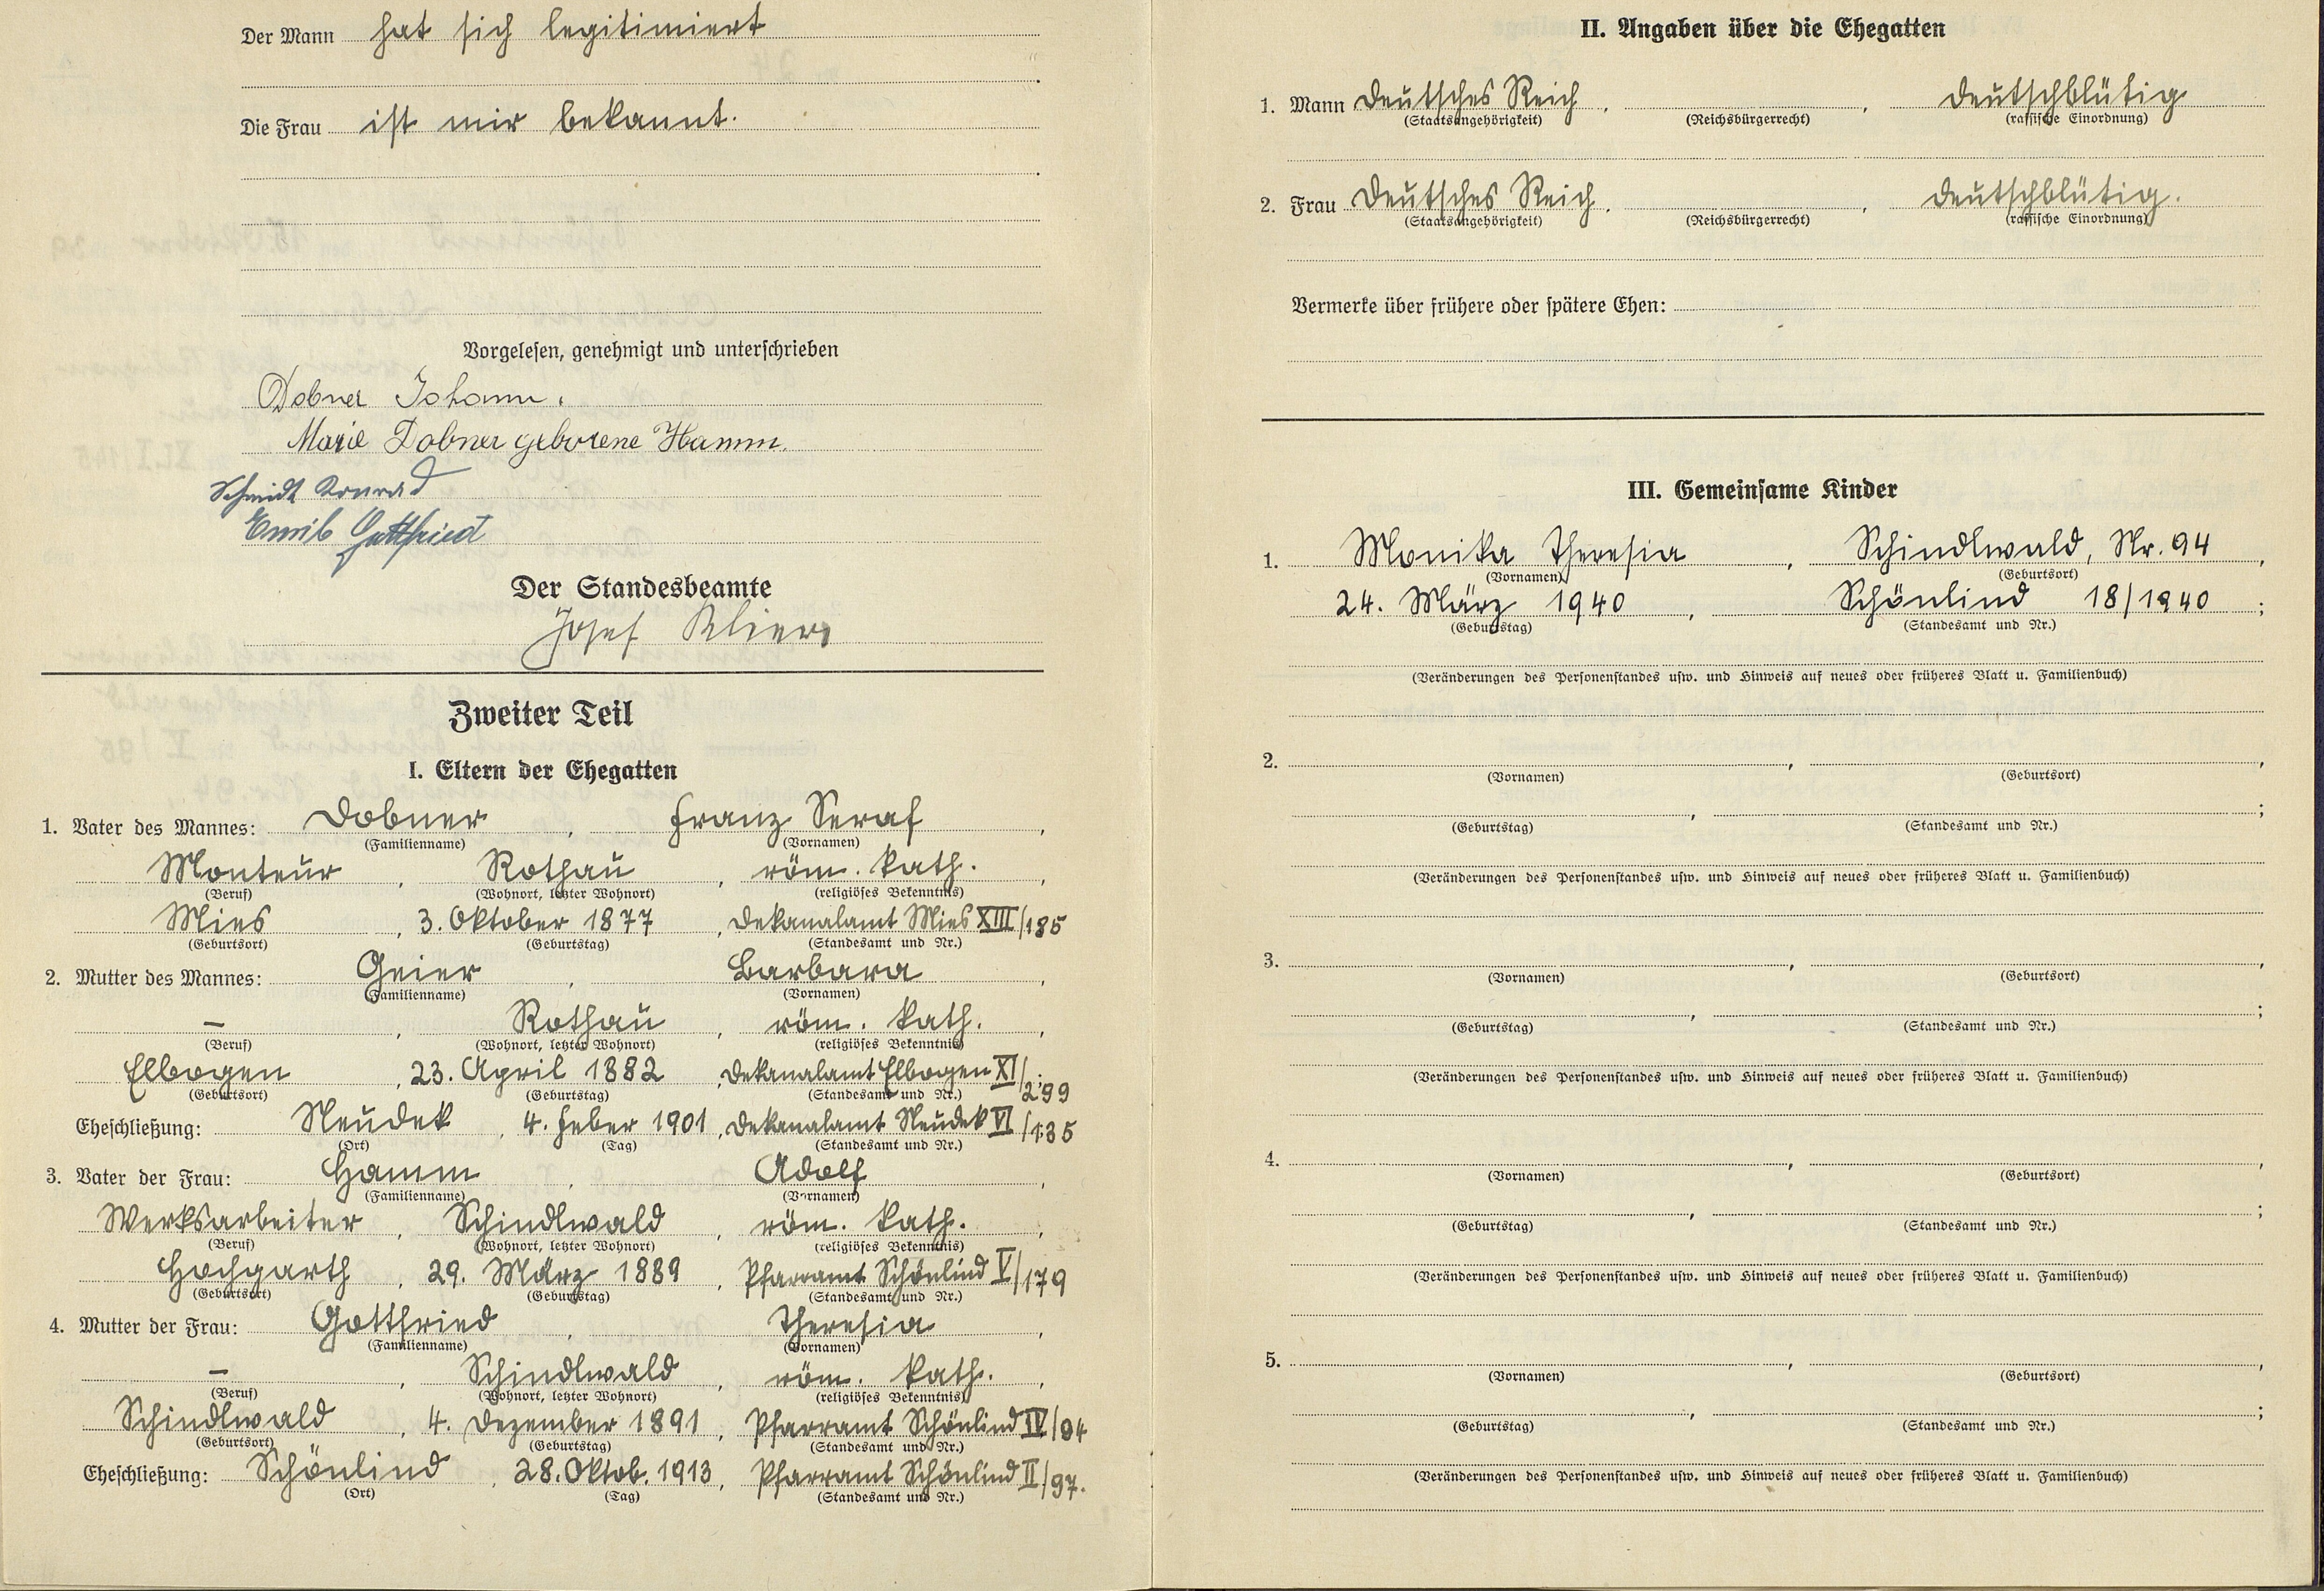 Der Mann hat sich legitimiert
Die Frau ist mir bekannt.
Vorgelesen, genehmigt und unterschrieben
Dobner Johann.
Marie Dobner geborene Hamm.
Schmidt Konrad
Emil Gottfried
Der Standesbeamte
Josef Klier
Zweiter Teil
I. Eltern der Ehegatten
1. Vater des Mannes: Dobner, Franz Seraf,
(Familienname) (Vornamen)
Monteur, Rothau, röm. kath.,
(Beruf) (Wohnort, letzter Wohnort) (religiöses Bekenntnis)
Mies, 3. Oktober 1877, Dekanalamt Mies XIII/185
(Geburtsort) (Geburtstag) (Standesamt und Nr.)
2. Mutter des Mannes: Geier, Barbara,
(Familienname) (Vornamen)
—, Rothau, röm. kath.,
(Beruf) (Wohnort, letzter Wohnort) (religiöses Bekenntnis)
Elbogen, 23. April 1882, Dekanalamt Elbogen XI/299
(Geburtsort) (Geburtstag) (Standesamt und Nr.)
Eheschließung: Neudek, 4. Feber 1901, Dekanalamt Neudek VI/135
(Ort) (Tag) (Standesamt und Nr.)
3. Vater der Frau: Hamm, Adolf,
(Familienname) (Vornamen)
Werksarbeiter, Schindlwald, röm. kath.,
(Beruf) (Wohnort, letzter Wohnort) (religiöses Bekenntnis)
Hochgarth, 29. März 1889, Pfarramt Schönlind V/179
(Geburtsort) (Geburtstag) (Standesamt und Nr.)
4. Mutter der Frau: Gottfried, Theresia,
(Familienname) (Vornamen)
—, Schindlwald, röm. kath.,
(Beruf) (Wohnort, letzter Wohnort) (religiöses Bekenntnis)
Schindlwald, 4. Dezember 1891, Pfarramt Schönlind IV/94
(Geburtsort) (Geburtstag) (Standesamt und Nr.)
Eheschließung: Schönlind, 28. Oktob. 1913, Pfarramt Schönlind II/97.
(Ort) (Tag) (Standesamt und Nr.)
II. Angaben über die Ehegatten
1. Mann Deutsches Reich, , deutschblütig
(Staatsangehörigkeit) (Reichsbürgerrecht) (rassische Einordnung)
2. Frau Deutsches Reich, , deutschblütig.
(Staatsangehörigkeit) (Reichsbürgerrecht) (rassische Einordnung)
Vermerke über frühere oder spätere Ehen:
III. Gemeinsame Kinder
1. Monika Theresia, Schindlwald, Nr. 94,
(Vornamen) (Geburtsort)
24. März 1940, Schönlind 18/1940;
(Geburtstag) (Standesamt und Nr.)
(Veränderungen des Personenstandes usw. und Hinweis auf neues oder früheres Blatt u. Familienbuch)
2. , ,
(Vornamen) (Geburtsort)
, ;
(Geburtstag) (Standesamt und Nr.)
(Veränderungen des Personenstandes usw. und Hinweis auf neues oder früheres Blatt u. Familienbuch)
3. , ,
(Vornamen) (Geburtsort)
, ;
(Geburtstag) (Standesamt und Nr.)
(Veränderungen des Personenstandes usw. und Hinweis auf neues oder früheres Blatt u. Familienbuch)
4. , ,
(Vornamen) (Geburtsort)
, ;
(Geburtstag) (Standesamt und Nr.)
(Veränderungen des Personenstandes usw. und Hinweis auf neues oder früheres Blatt u. Familienbuch)
5. , ,
(Vornamen) (Geburtsort)
, ;
(Geburtstag) (Standesamt und Nr.)
(Veränderungen des Personenstandes usw. und Hinweis auf neues oder früheres Blatt u. Familienbuch)